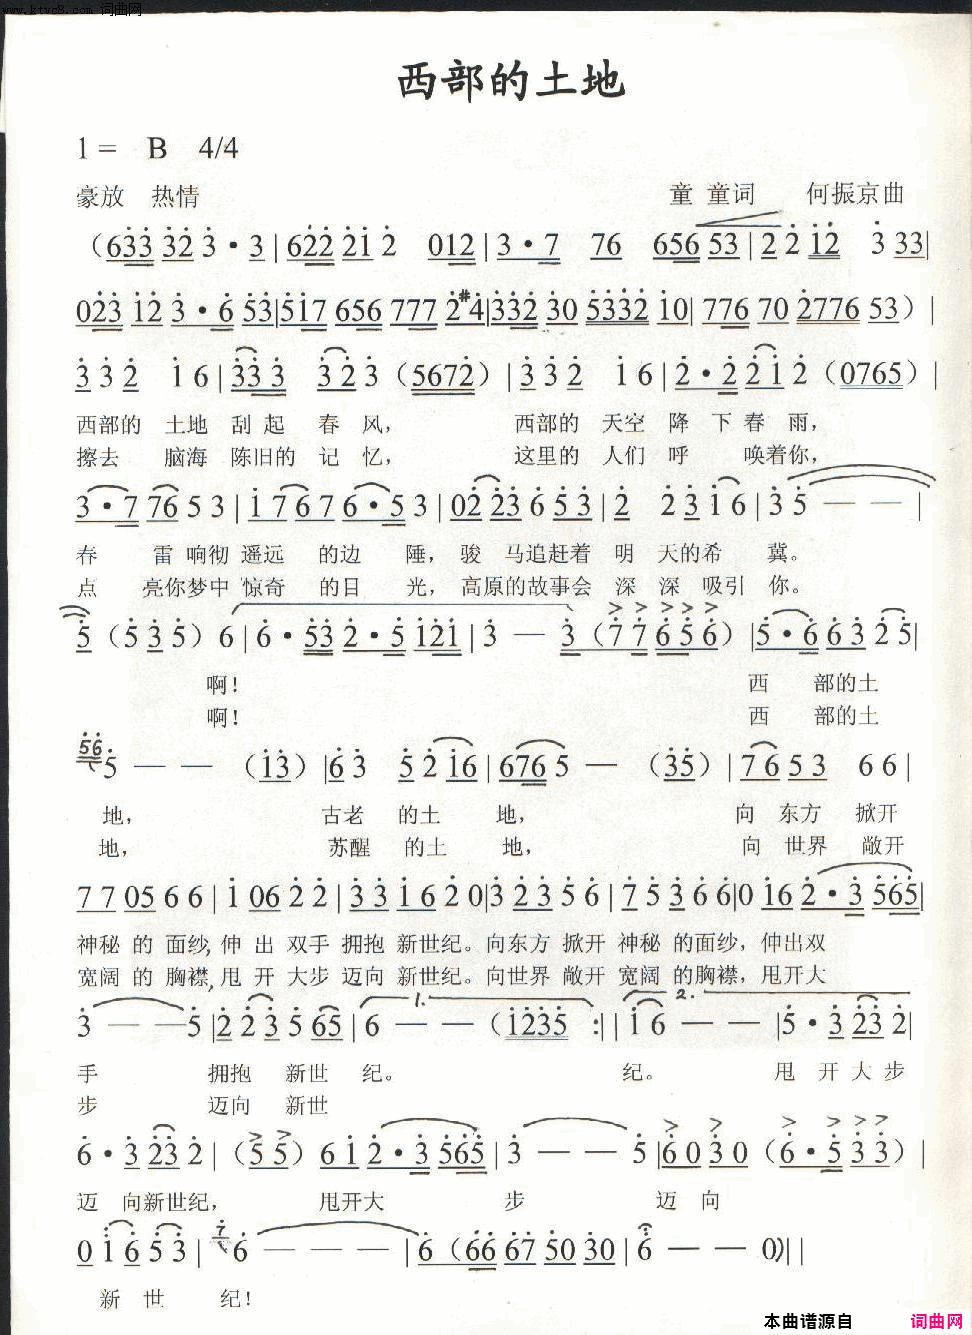 www.ktvc8.com 词曲网
西部的土地
1= B 4/4
豪放 热情 童 童词 何振京曲
(633 323·3|622 212 012|3·7 76 656 53|2 2 12 3 33|
023 12 3·6 53|517 656 777 2#4|332 30 5332 10|776 70 2776 53)|
3 3 2 1 6|3 3 3 3 2 3(5672)|3 3 2 1 6|2·2 2 1 2(0765)|
西部的 土地 刮 起 春 风, 西部的 天空 降 下 春 雨,
擦去 脑海 陈旧的 记 忆, 这里的 人们 呼 唤着你,
3·7 76 5 3|1 7 6 7 6·5 3|02 23 6 53|2 2 3 1 6|3 5 — — |
春 雷 响彻 遥远 的边 陲, 骏 马追赶着 明 天的希 冀。
点 亮你梦中 惊奇 的目 光, 高原的故事会 深 深 吸引 你。
5(5 3 5)6|6·53 2·5 121|3 — 3(7 7 6 5 6)|5·6 6 3 2 5|
啊! 西 部的土
啊! 西 部的土
56 5 — — (13)|6 3 5 2 16|676 5 — (35)|76 5 3 6 6|
地, 古老 的土 地, 向 东方 掀开
地, 苏醒 的土 地, 向 世界 敞开
77 05 6 6|1 06 2 2|3 3 1 6 2 0|3 2 3 5 6|7 5 3 6 6|0 16 2·3 565|
神秘 的 面纱, 伸 出 双手 拥抱 新世纪。向东方 掀开 神秘 的面纱, 伸出双
宽阔 的 胸襟, 甩 开 大步 迈向 新世纪。向世界 敞开 宽阔 的胸襟, 甩开大
3 — — 5|2 2 3 5 65|1. 6 — — (1235 :||2. 1 6 — — |5·3 23 2|
手 拥抱 新世 纪。 纪。 甩 开 大 步
步 迈向 新世
6·3 23 2|(5 5) 6 1 2·3 565|3 — — 5|60 30 (6·5 3 3)|
迈 向新世纪, 甩开大 步 迈 向
0 1 6 5 3|7 6 — — — |6(66 67 50 30|6 — — 0)||
新 世 纪!
本曲谱源自 词曲网